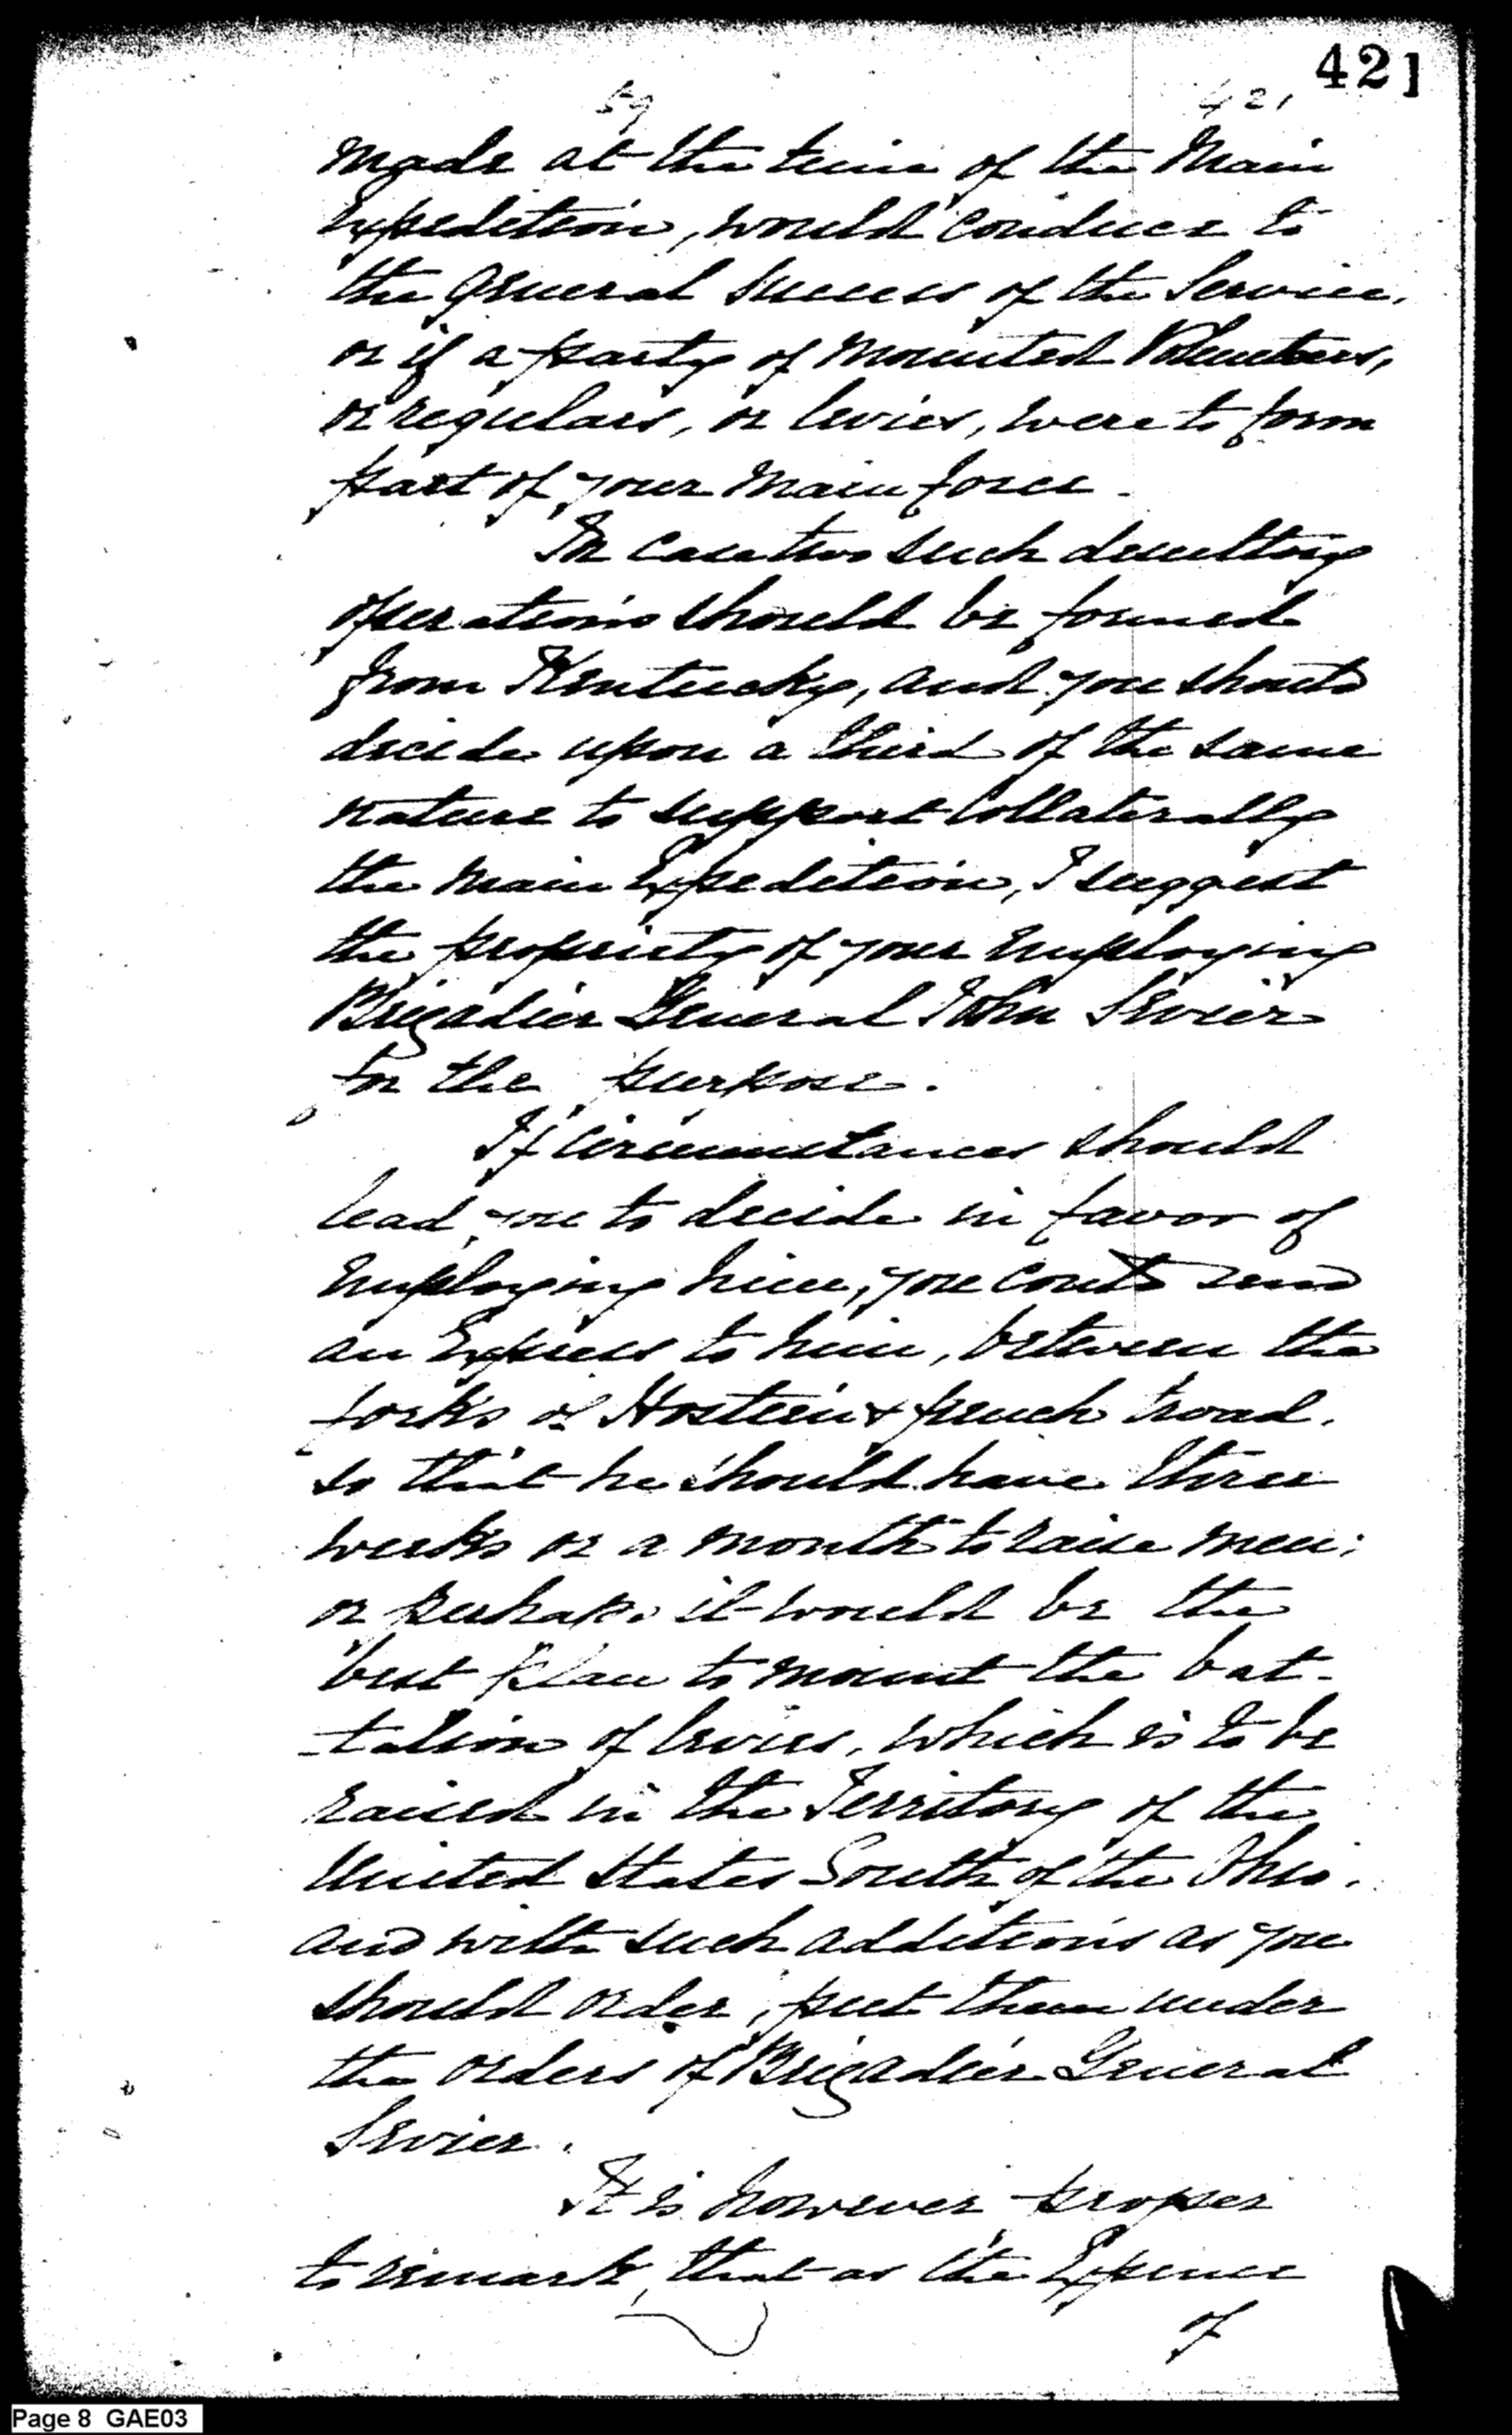 421
59 421
made at the time of the Main
Expedition, would conduce to
the general success of the Service,
or if a party of mounted Volunteers,
or regulars, or levies, were to form
part of your main force.
In case two such desultory
operations should be formed
from Kentucky, and you should
decide upon a third of the same
nature to support Collaterally
the main Expedition, I suggest
the propriety of your employing
Brigadier General John Sevier
for the purpose.
If circumstances should
lead you to decide in favor of
employing him, you could send
an Express to him, between the
forks of Hostein & french broad.
so that he should have three
weeks or a month to raise men;
or perhaps it would be the
best plan to mount the bat-
-talion of levies, which is to be
raised in the Territory of the
United States South of the Ohio.
and with such additions as you
should order, put them under
the orders of Brigadier General
Sevier.
It is however proper
to remark, that as the Expence
of
Page 8 GAE03